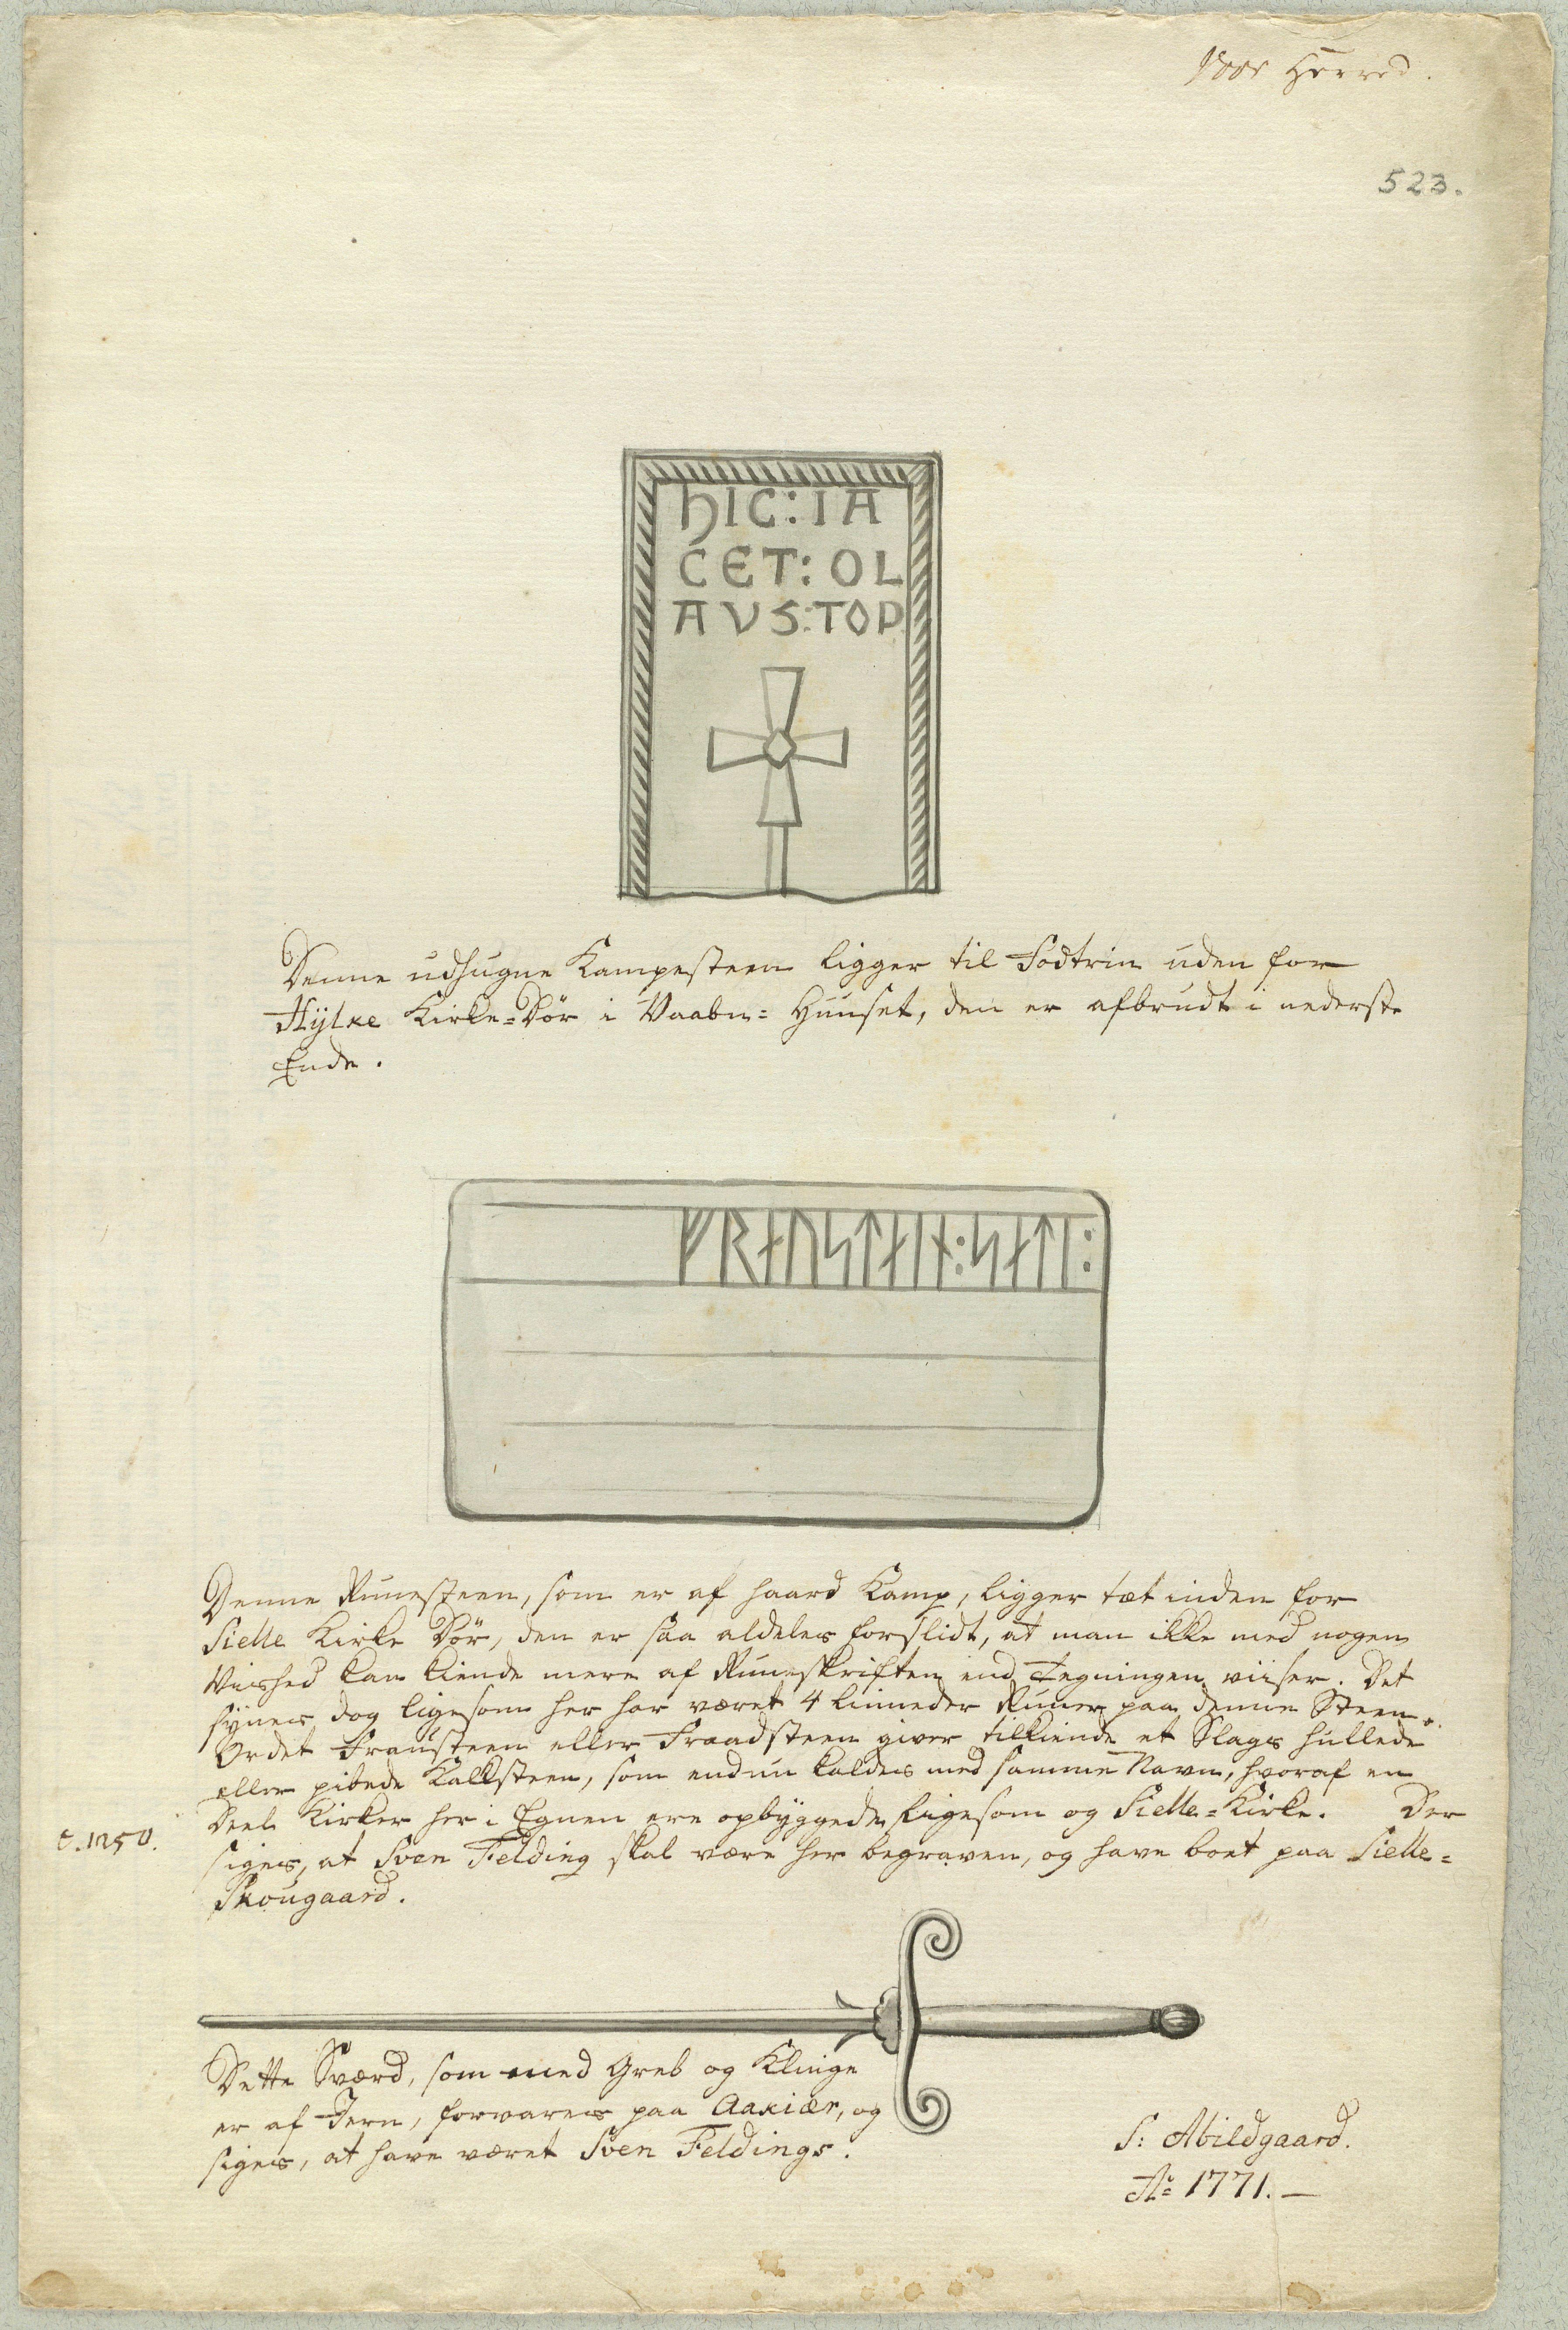 Voor Herred.
523.
HIC:IA
CET:OL
AVS:TOP
Denne udhugne Kampesteen ligger til Fodtrin uden for
Hylke Kirke=Dör i Vaabn=Huuset, den er afbrudt i nederste
Ende.
ᚠᚱᚬᚢᛋᛏᚬᛁᚾ:ᛋᛅᛏᛁ:
Denne Runesteen, som er af haard Kamp, ligger tæt inden for
Sielle Kirke Dör, den er saa aldeles forslidt, at man ikke med nogen
Vished kan kiende mere af Runeskriften end Tegningen viiser. Det
synes dog ligesom her har været 4 linneder Runer paa denne Steen.
Ordet Frausteen eller Fraadsteen giver tilkiende et Slags hullede
eller pibede Kalksteen, som endnu kaldes med samme Navn, hvoraf en
Deel Kirker her i Egnen ere opbyggede ligesom og Sielle=Kirke. Der
c.1250.
siges, at Sven Felding skal være her begraven, og have boet paa Sielle=
Skougaard.
Dette Sværd, som med Greb og Klinge
er af Jern, forvares paa Aakiær, og
siges, at have været Sven Feldings.
S: Abildgaard.
Aº 1771.—